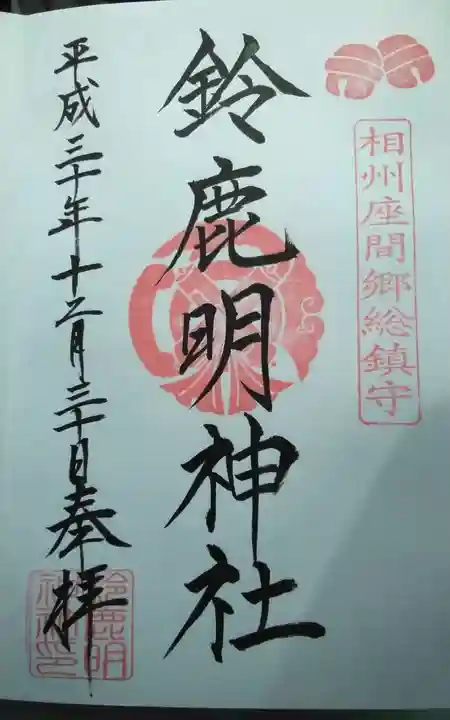 相州座間郷総鎮守
鈴鹿明神社
平成三十年十二月三十日奉拝
鈴鹿明
神社印